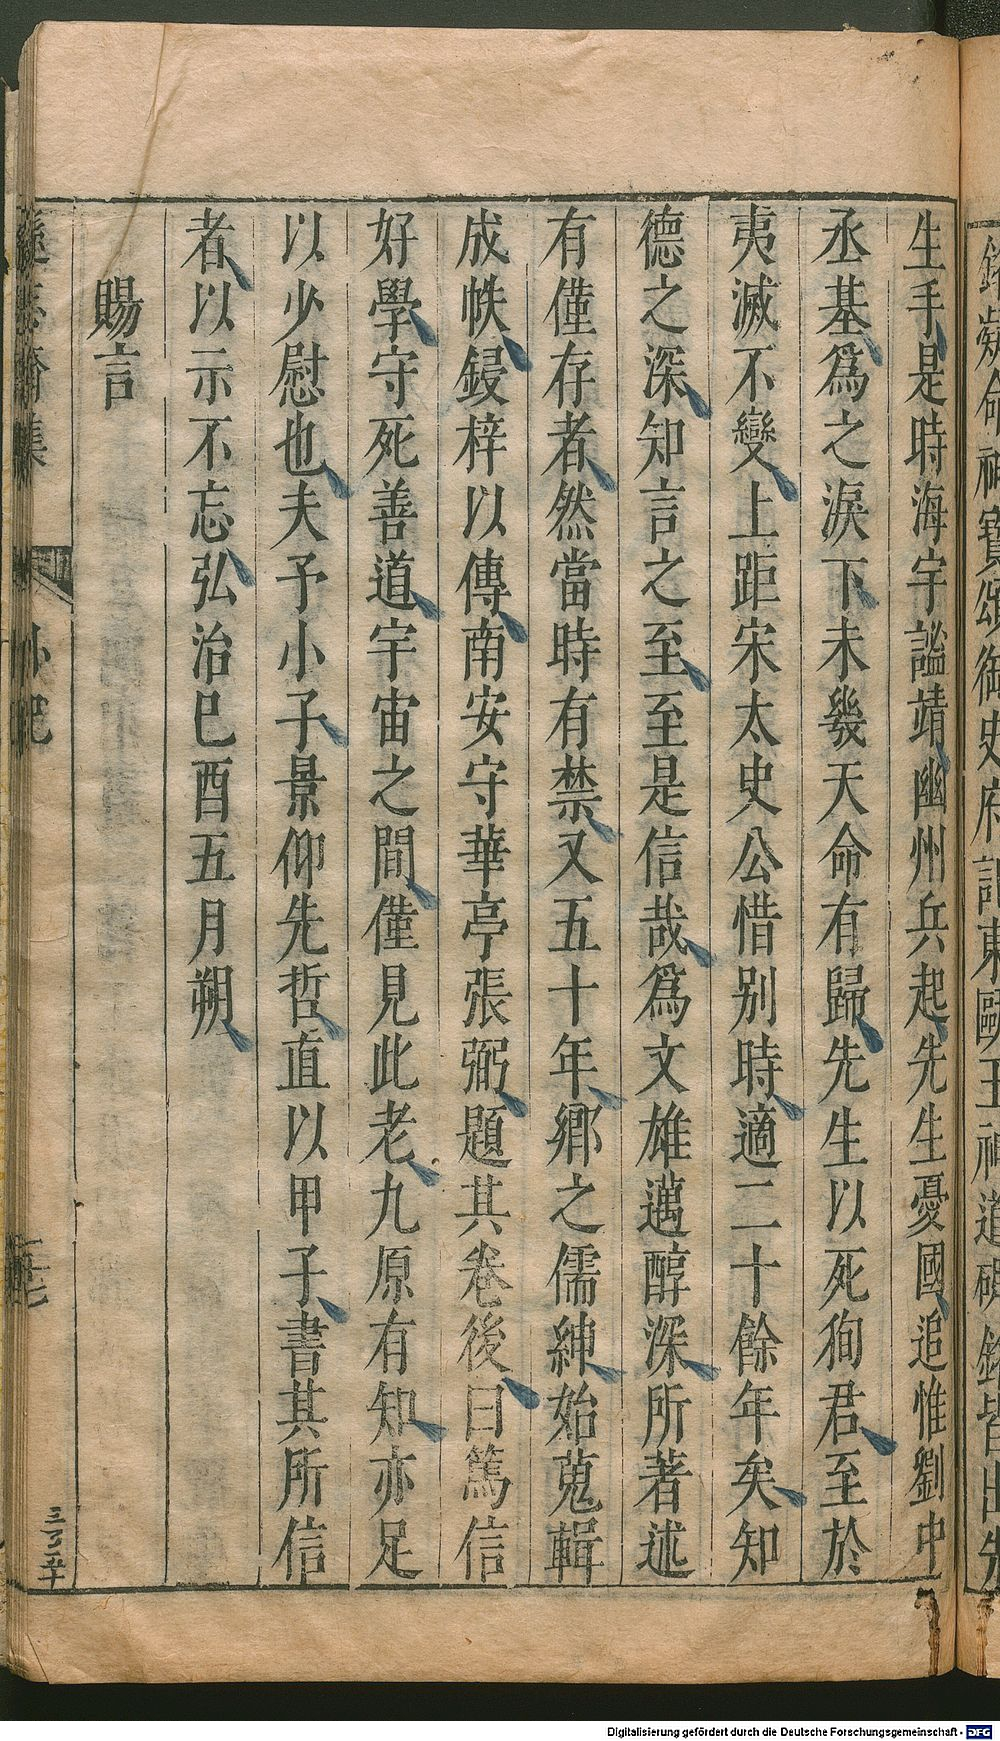 生手是時海宇謐靖幽州兵起先生憂國追惟劉中
丞基爲之淚下未幾天命有歸先生以死狥君至於
夷滅不變上距宋太史公惜别時適二十餘年矣知
德之深知言之至至是信哉爲文雄邁醇深所著述
有僅存者然當時有禁又五十年鄉之儒紳始蒐輯
成帙鋟梓以傳南安守華亭張弼題其卷後曰篤信
好學守死善道宇宙之間僅見此老九原有知亦足
以少慰也夫予小子景仰先哲直以甲子書其所信
者以示不忘弘治巳酉五月朔
賜言
遜志齋集
外紀
Digitalisierung gefördert durch die Deutsche Forschungsgemeinschaft - DFG